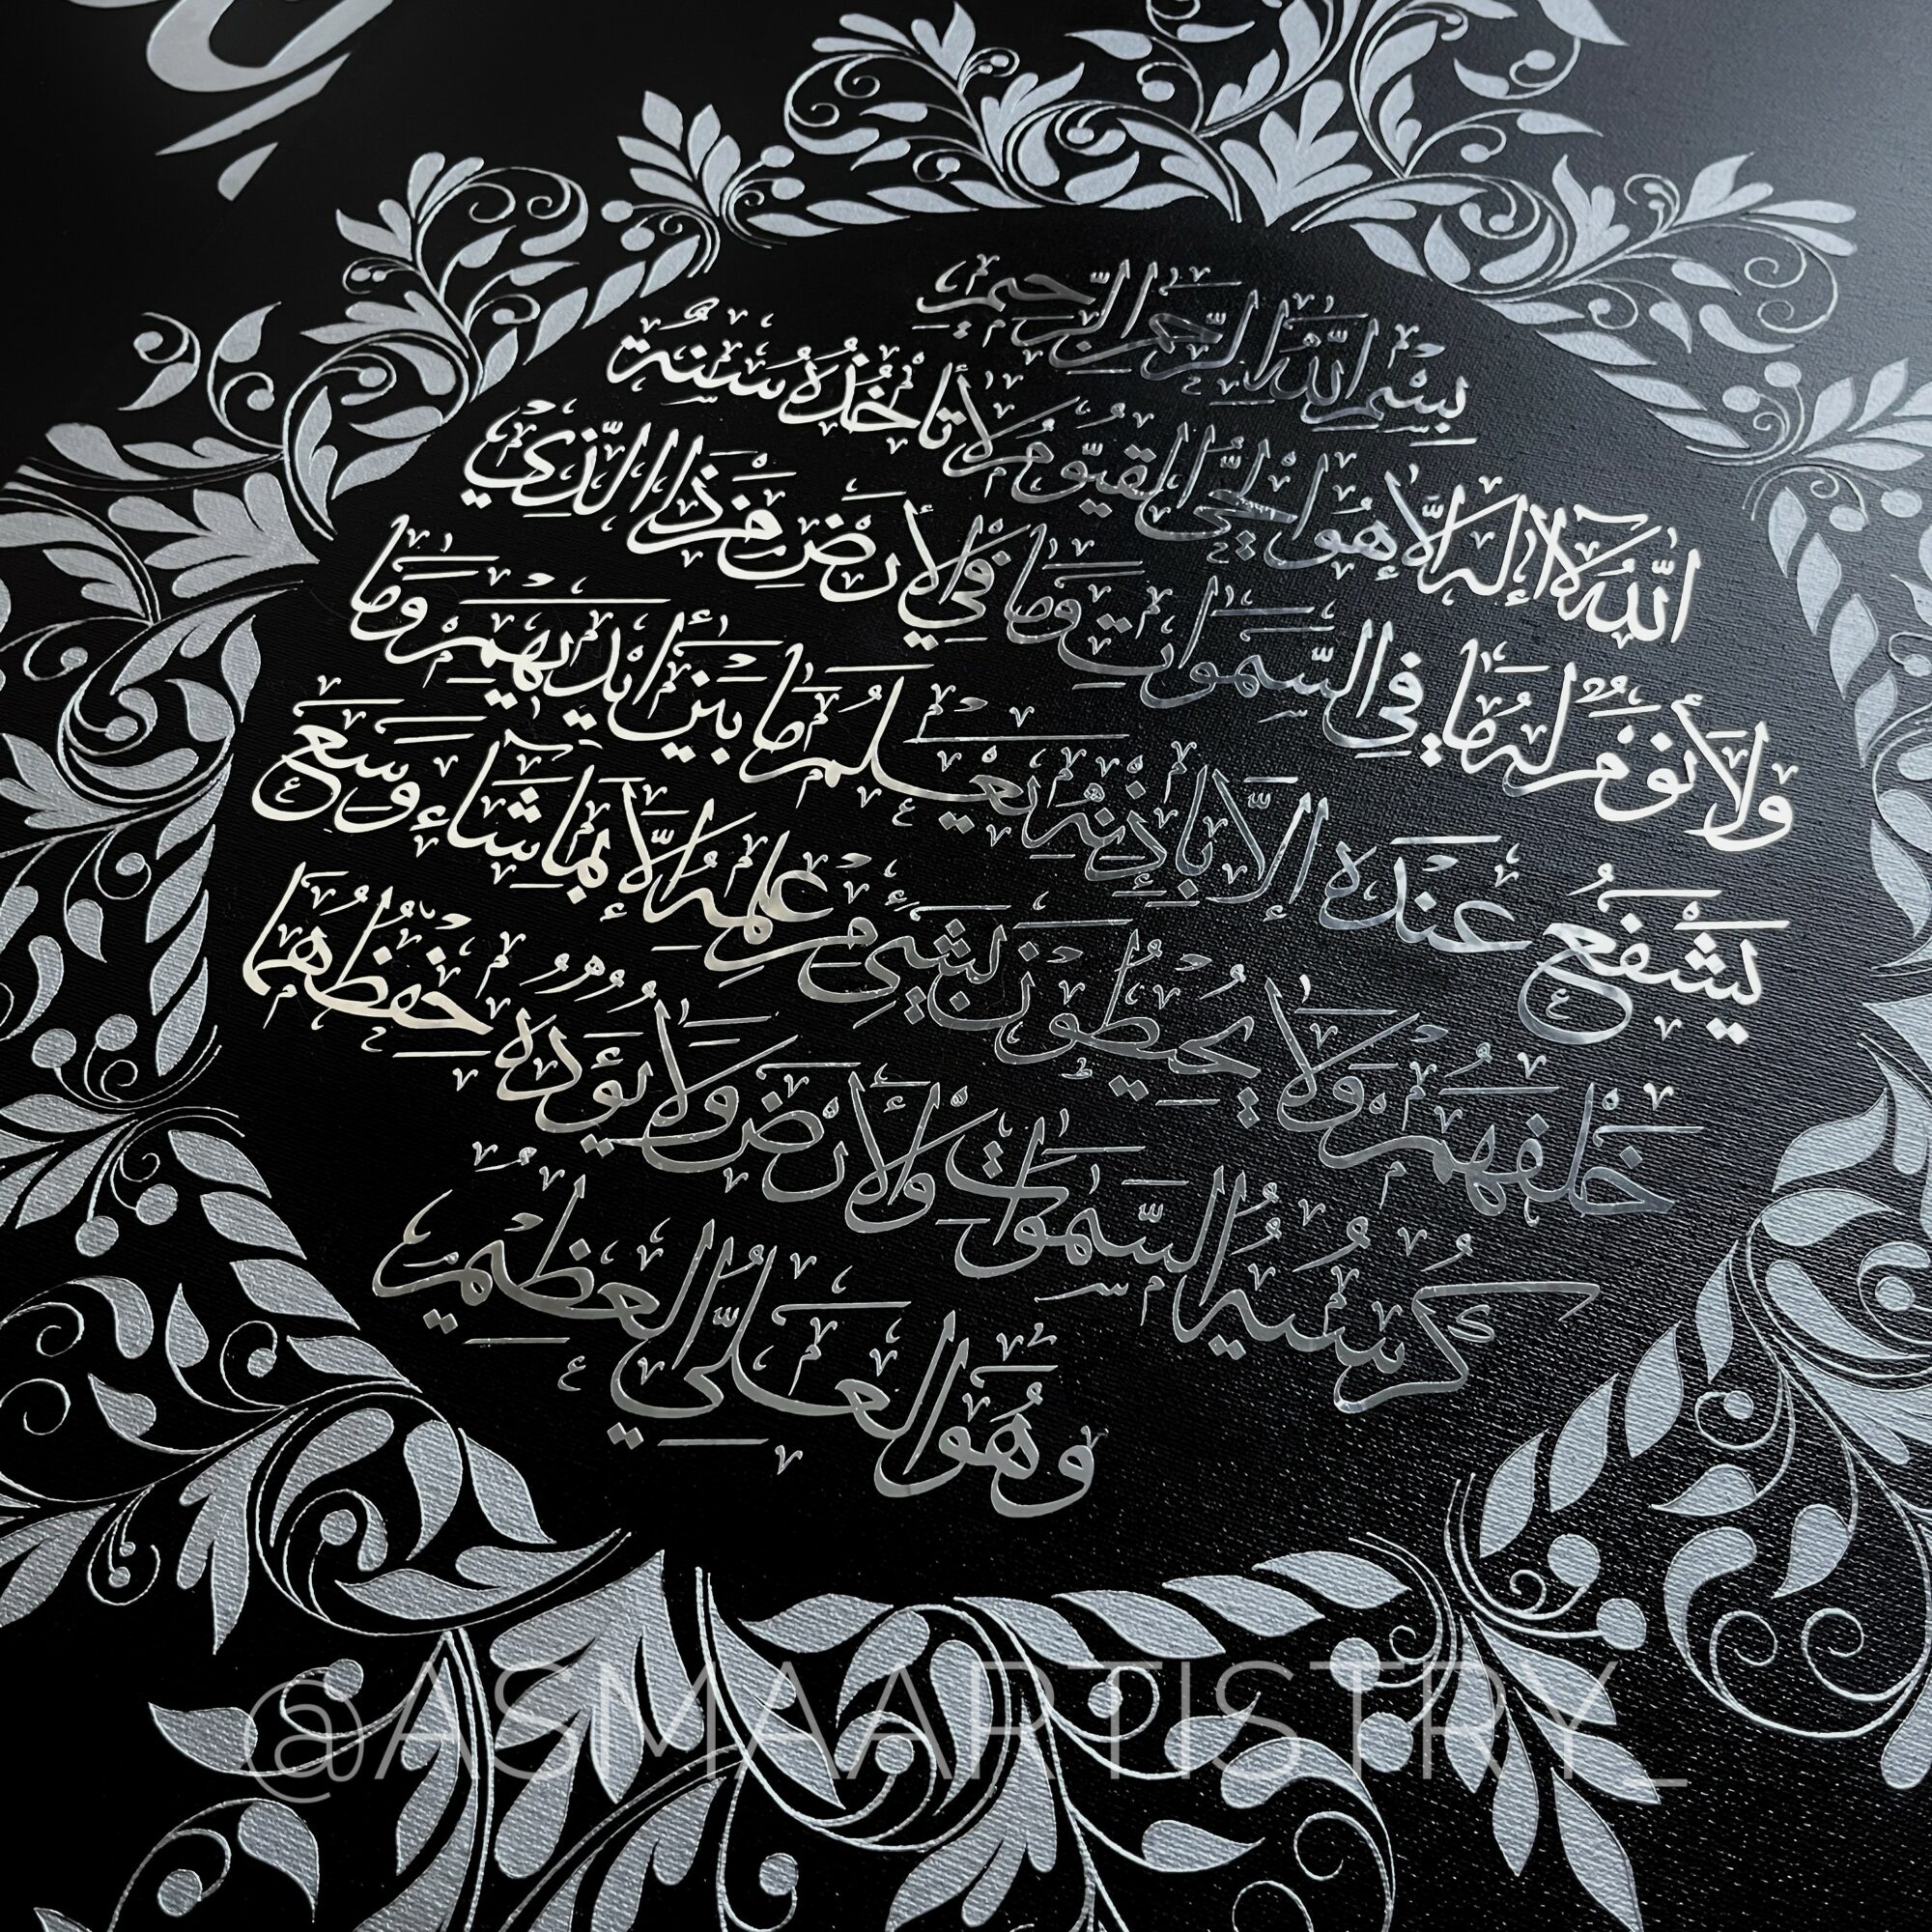 بِسْمِ اللَّهِ الرَّحْمَنِ الرَّحِيمِ
اللَّهُ لَا إِلَهَ إِلَّا هُوَ الْحَيُّ الْقَيُّومُ لَا تَأْخُذُهُ سِنَةٌ
وَلَا نَوْمٌ لَهُ مَا فِي السَّمَوَاتِ وَمَا فِي الْأَرْضِ مَنْ ذَا الَّذِي
يَشْفَعُ عِنْدَهُ إِلَّا بِإِذْنِهِ يَعْلَمُ مَا بَيْنَ أَيْدِيهِمْ وَمَا
خَلْفَهُمْ وَلَا يُحِيطُونَ بِشَيْءٍ مِنْ عِلْمِهِ إِلَّا بِمَا شَاءَ وَسِعَ
كُرْسِيُّهُ السَّمَوَاتِ وَالْأَرْضَ وَلَا يَؤُدُهُ حِفْظُهُمَا
وَهُوَ الْعَلِيُّ الْعَظِيمُ
@ASMAARTISTRY_